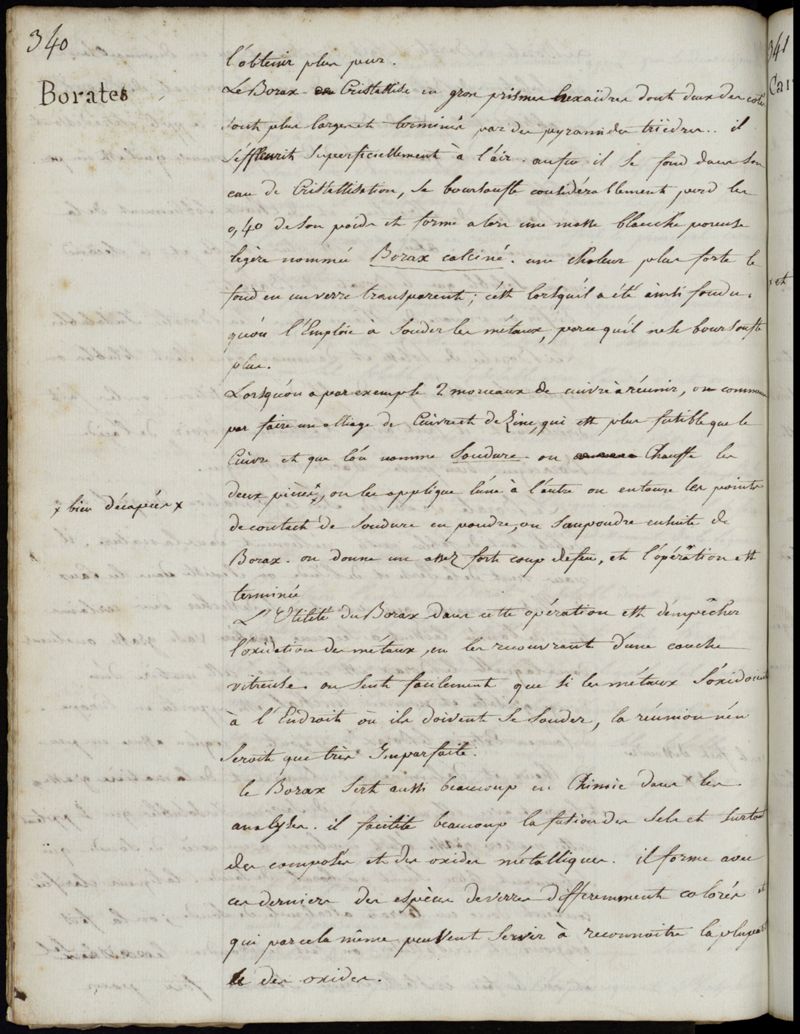 340
Borates
l'obtenir plus pur.
Le Borax Cristallise en gros prismes hexaïdres dont deux des cotés
sont plus larges et terminés par des pyramides triedres.. il
s'effleurit superficiellement à l'air. au feu il se fond dans son
eau de Cristallisation, se boursoufle considérablement perd les
0,40 de son poids et forme alors une masse blanche poreuse
légère nommée Borax calciné. une chaleur plus forte le
fond en un verre transparent; c'est lorsqu'il a été ainsi fondu
qu'on l'Emploie à souder les métaux, parcequ'il ne se boursoufle
plus.
Lorsqu'on a par exemple 2 morceaux de cuivre à réunir, on commence
par faire un alliage de Cuivre et de Zinc, qui est plus fusible que le
Cuivre et que l'on nomme Soudure. on Chauffe les
deux pièces x, on les applique l'une à l'autre on entoure les points
x bien décapées x
de contact de Soudure en poudre, on Saupoudre ensuite de
Borax. on donne un assez fort coup de feu, et l'opération est
terminée
L'Utilité du Borax dans cette opération est d'empêcher
l'oxidation des métaux, en les recouvrant d'une couche
vitreuse. on sent facilement que si les métaux s'oxidoient
à l'Endroit où ils doivent se souder, la réunion n'en
seroit que très Imparfaite.
le Borax sert aussi beaucoup en Chimie dans les
analyses. il facilite beaucoup la fusion des sels et surtout
des composés et des oxides métalliques. il forme avec
ces derniers des espèces de verres différemment colorés et
qui par cela même peuvent servir à reconnoitre la plupart
des oxides.
341
Car
et